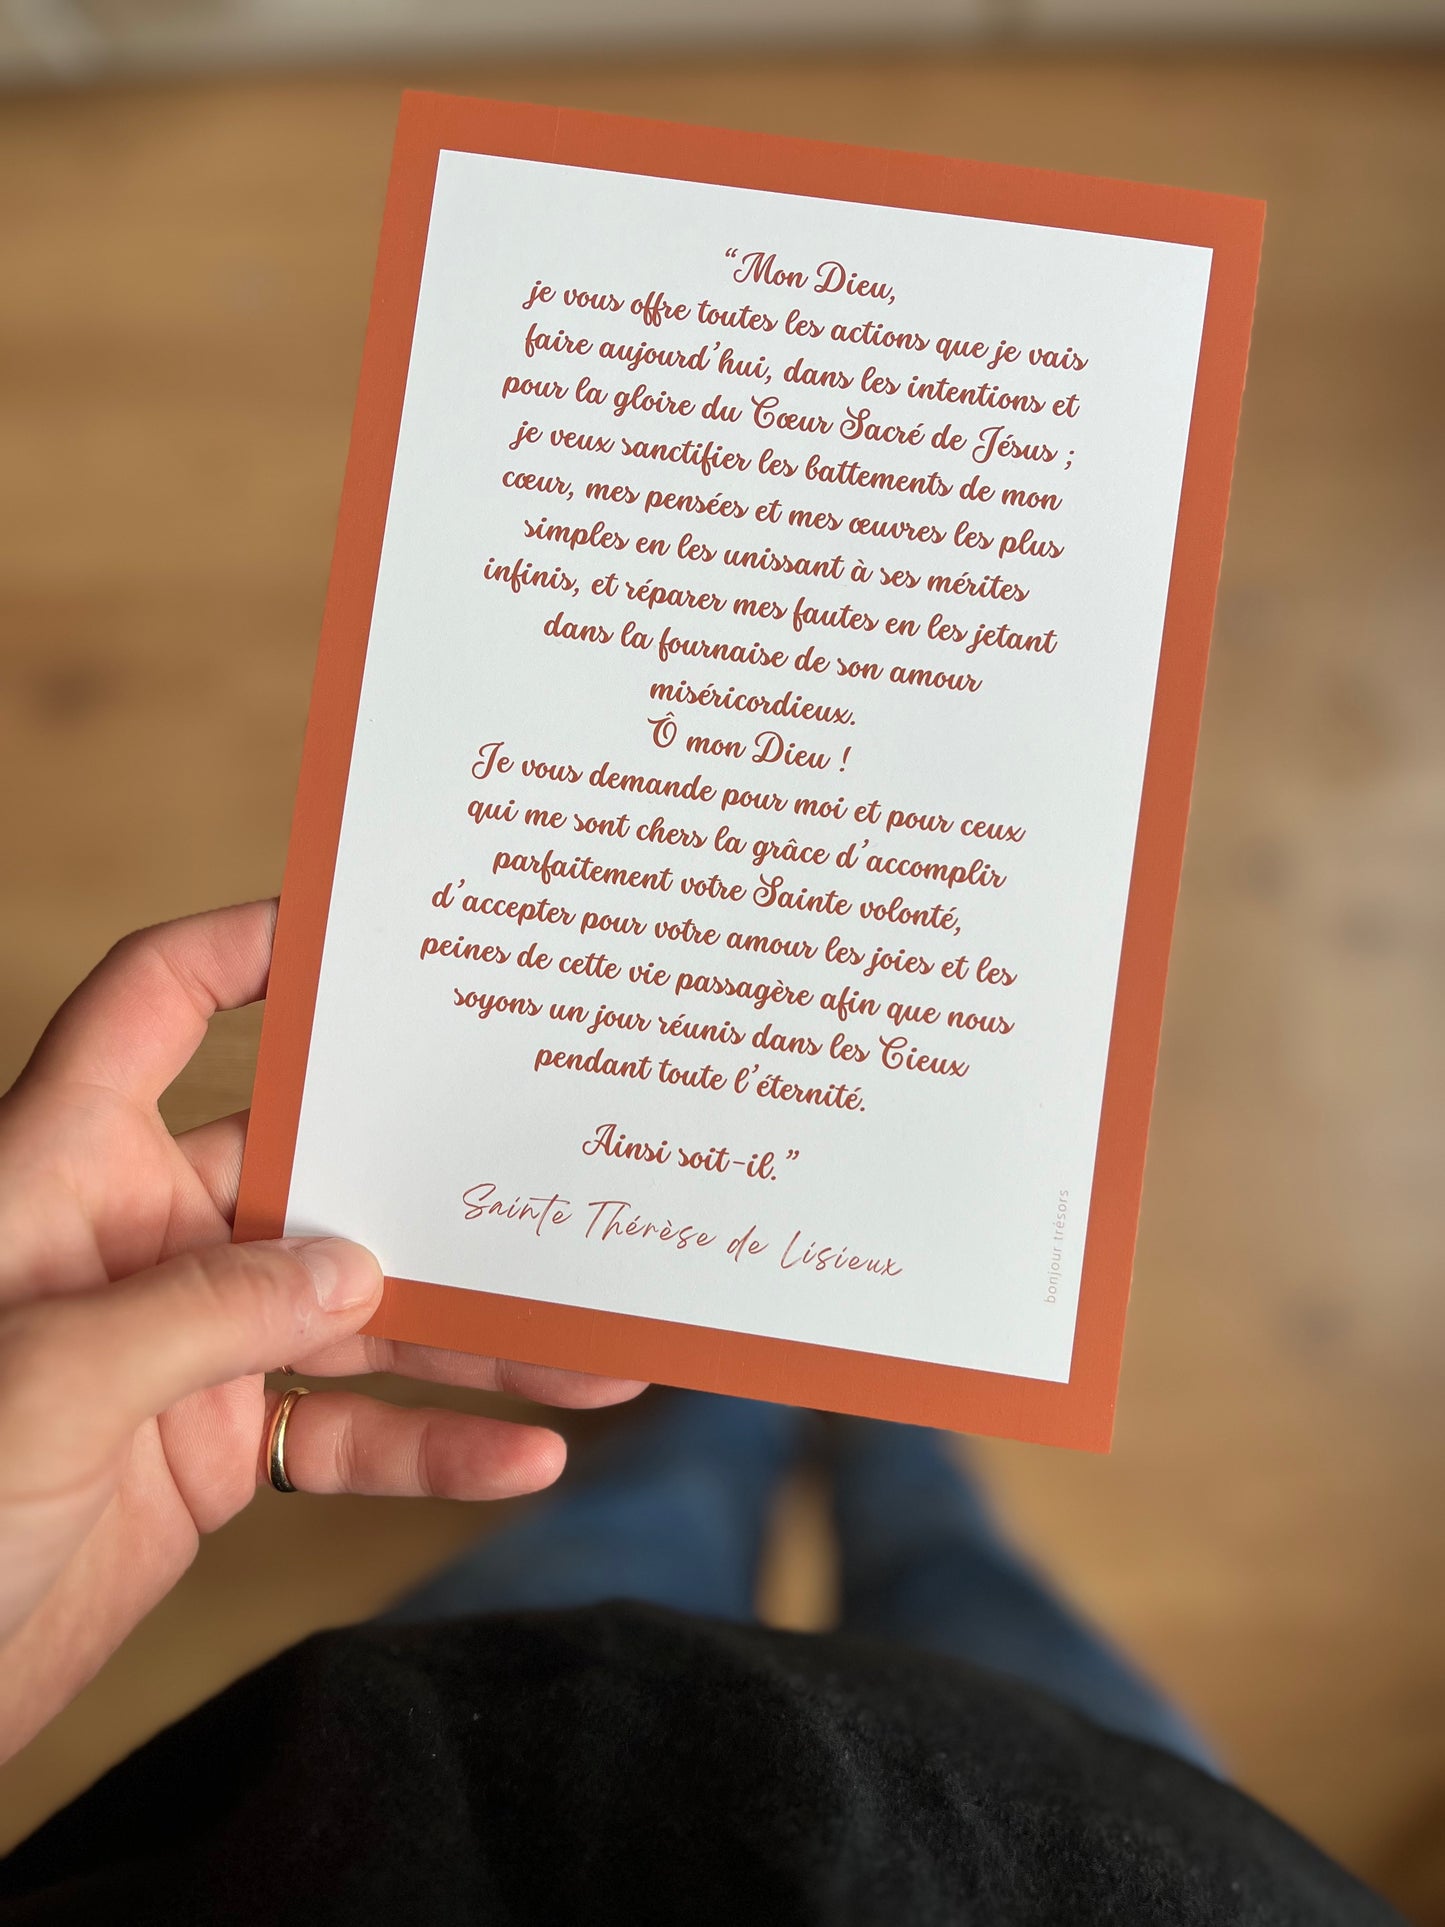 “Mon Dieu,
je vous offre toutes les actions que je vais
faire aujourd’hui, dans les intentions et
pour la gloire du Cœur Sacré de Jésus ;
je veux sanctifier les battements de mon
cœur, mes pensées et mes œuvres les plus
simples en les unissant à ses mérites
infinis, et réparer mes fautes en les jetant
dans la fournaise de son amour
miséricordieux.
Ô mon Dieu !
Je vous demande pour moi et pour ceux
qui me sont chers la grâce d’accomplir
parfaitement votre Sainte volonté,
d’accepter pour votre amour les joies et les
peines de cette vie passagère afin que nous
soyons un jour réunis dans les Cieux
pendant toute l’éternité.
Ainsi soit-il.”
Sainte Thérèse de Lisieux
bonjour trésors